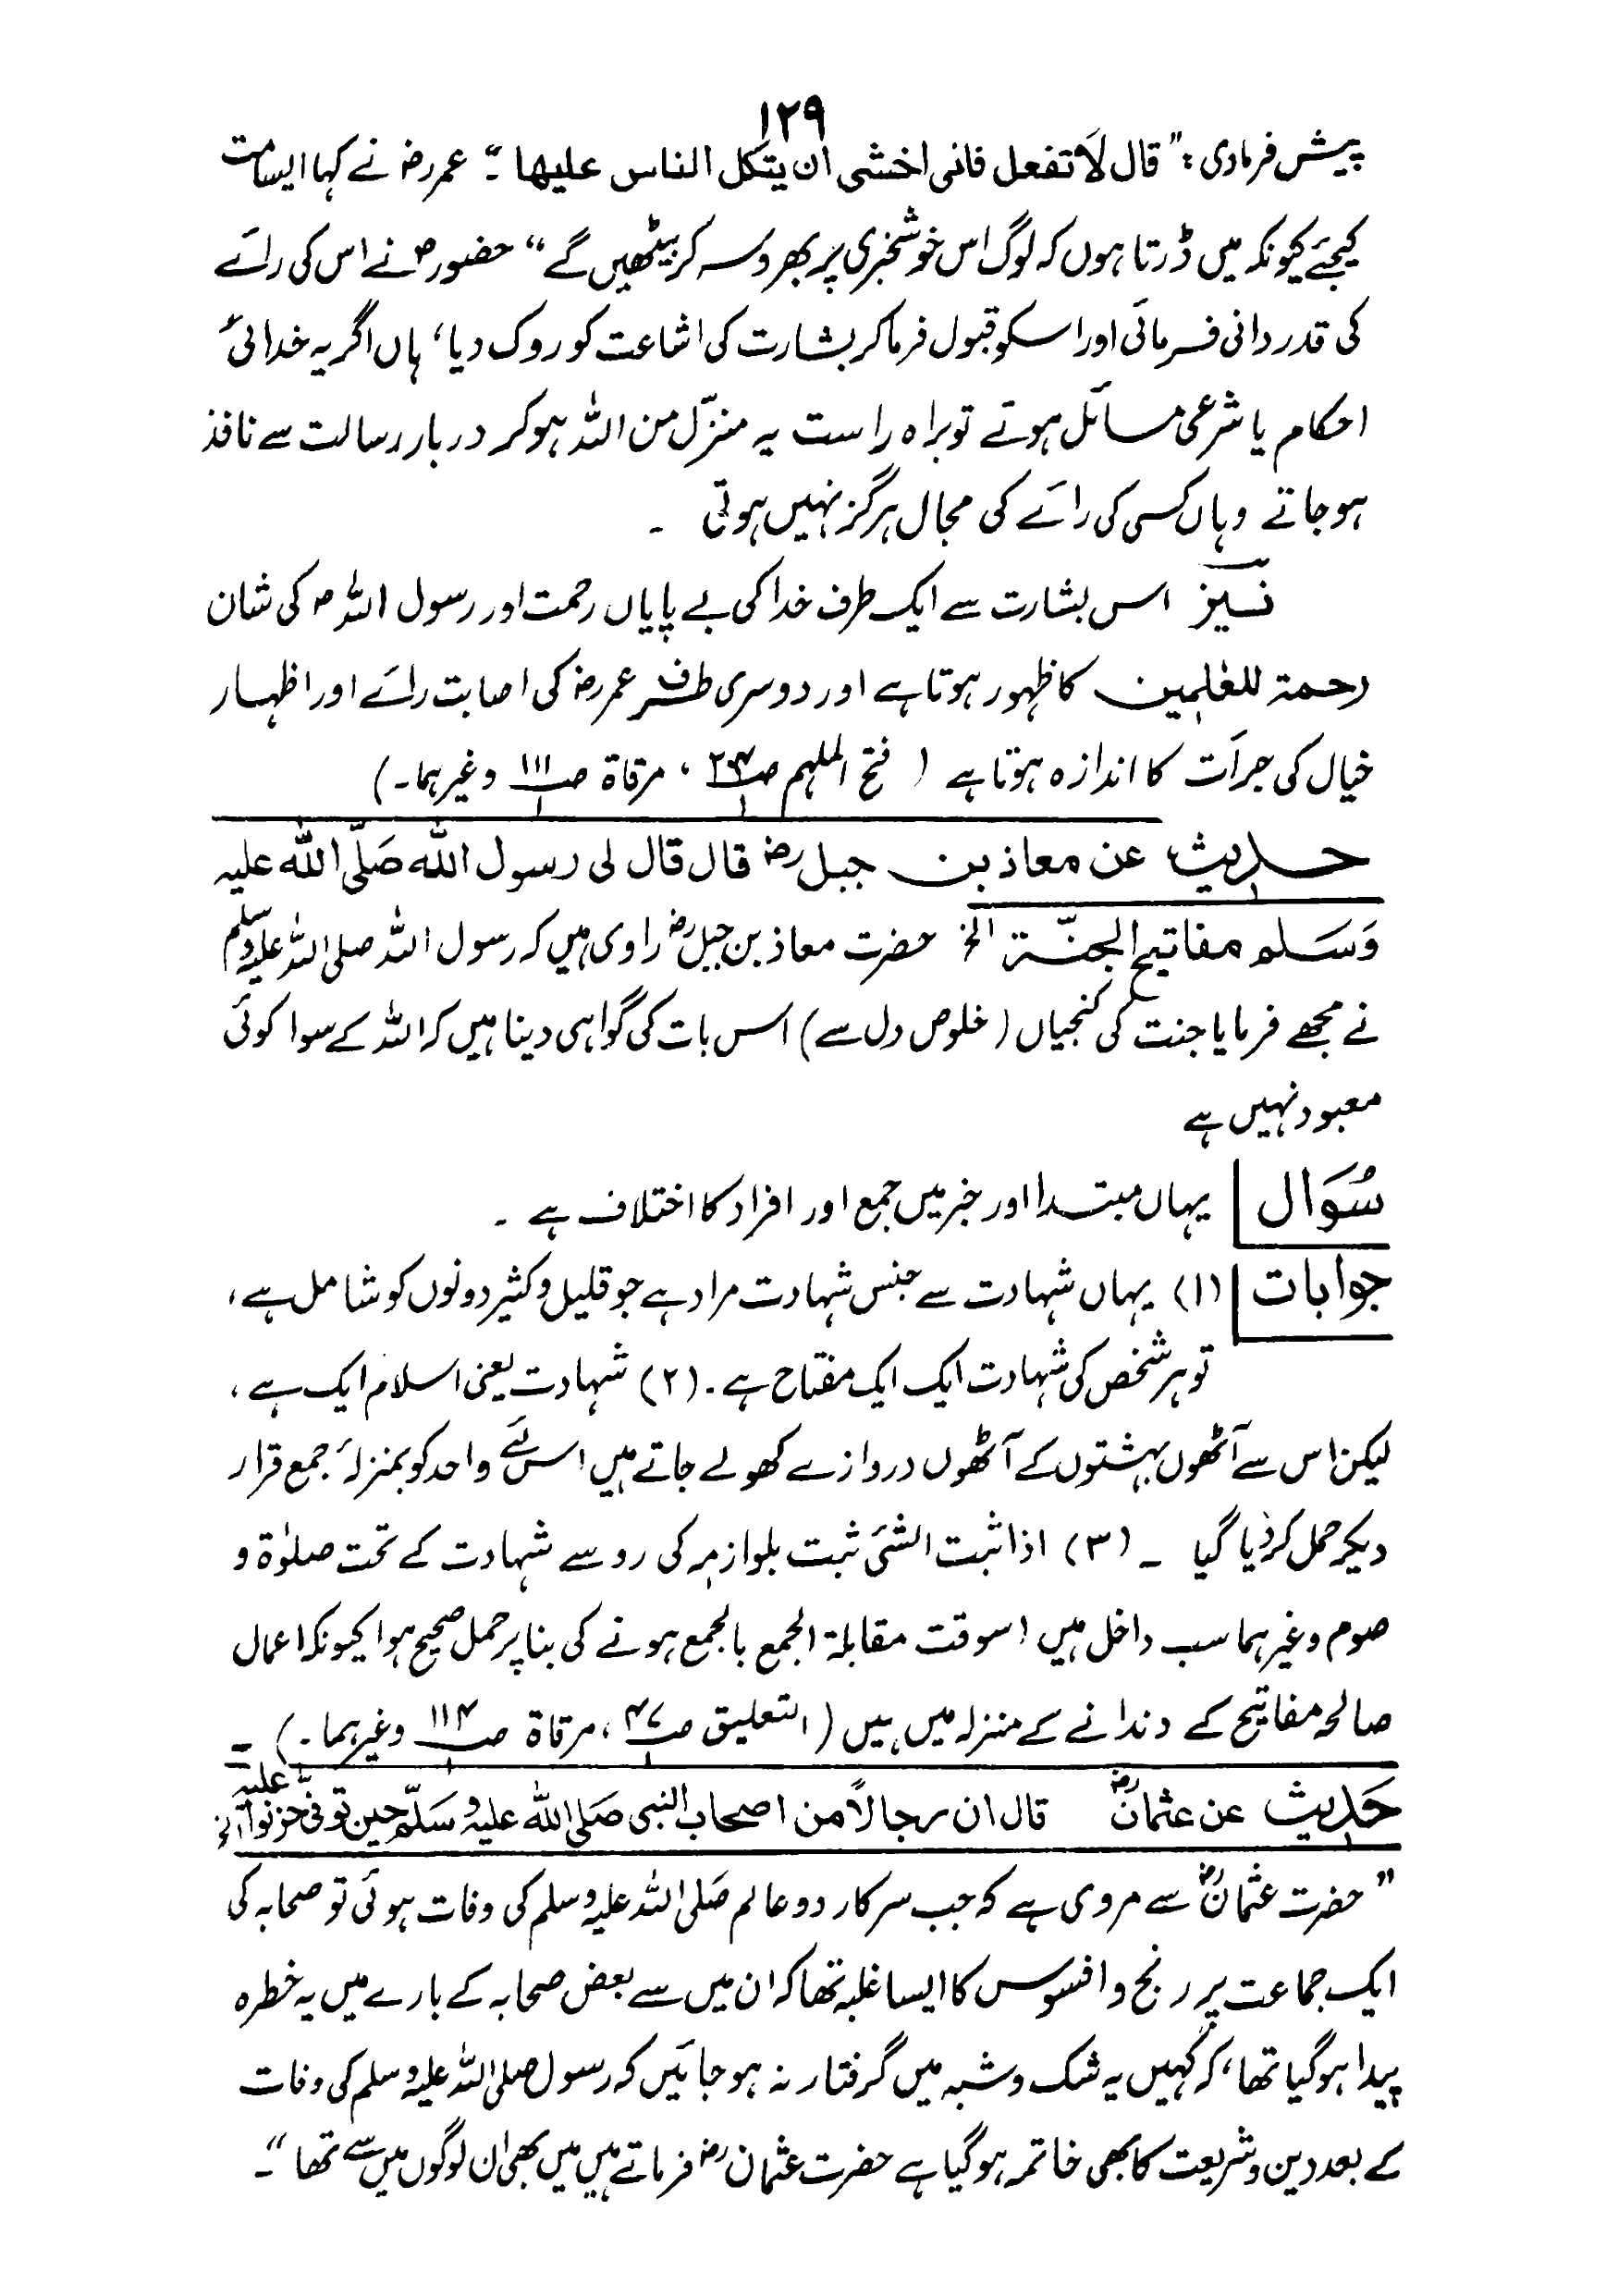 ۱۲۹
پیش فرمادی: "قال لا تفعل فانی اخشی ان یتکل الناس علیها ـ" عمر رض نے کہا ایسا مت
کیجئے کیونکہ میں ڈرتا ہوں کہ لوگ اس خوشخبری پر بھروسہ کر بیٹھیں گے" حضور ص نے اس کی رائے
کی قدر دانی فرمائی اور اسکو قبول فرما کر بشارت کی اشاعت کو روک دیا، ہاں اگر یہ خدائی
احکام یا شرعی مسائل ہوتے تو براہ راست یہ منزّل من اللہ ہو کر دربار رسالت سے نافذ
ہو جاتے وہاں کسی کی رائے کی مجال ہرگز نہیں ہوتی ۔
نیز اس بشارت سے ایک طرف خدا کی بے پایاں رحمت اور رسول اللہ ص کی شان
رحمۃ للعٰلمین کا ظہور ہوتا ہے اور دوسری طرف عمر رض کی اصابت رائے اور اظہار
خیال کی جرأت کا اندازہ ہوتا ہے ( فتح الملہم ص ۲۰۴/۱ ، مرقاۃ ص ۱۱۱/۱ وغیرہما۔)
حدیث عن معاذ بن جبل رض قال قال لی رسول الله صَلّی الله علیه
وَسَلم مفاتیح الجنّة الخ حضرت معاذ بن جبل رض راوی ہیں کہ رسول اللہ صلی اللہ علیہ وسلم
نے مجھے فرمایا جنت کی کنجیاں (خلوص دل سے) اس بات کی گواہی دینا ہیں کہ اللہ کے سوا کوئی
معبود نہیں ہے
سُوَال یہاں مبتدا اور خبر میں جمع اور افراد کا اختلاف ہے ۔
جوابات (۱) یہاں شہادت سے جنس شہادت مراد ہے جو قلیل و کثیر دونوں کو شامل ہے،
تو ہر شخص کی شہادت ایک ایک مفتاح ہے۔ (۲) شہادت یعنی اسلام ایک ہے،
لیکن اس سے آٹھوں بہشتوں کے آٹھوں دروازے کھولے جاتے ہیں اس لئے واحد کو بمنزلۂ جمع قرار
دیکر حمل کر دیا گیا ۔ (۳) اذا ثبت الشئ ثبت بلوازمہ کی رو سے شہادت کے تحت صلوٰۃ و
صوم وغیرہما سب داخل ہیں اسوقت مقابلۃ الجمع بالجمع ہونے کی بنا پر حمل صحیح ہوا کیونکہ اعمال
صالحہ مفاتیح کے دندانے کے منزلہ میں ہیں (التعلیق ص ۴۷/۱ ، مرقاۃ ص ۱۱۴/۱ وغیرہما۔) ۔
حَدیث عن عثمان رض قال ان رجالاً من اصحاب النبی صَلی الله علیه وسَلّم حین توفی حزنوا علیه الخ
"حضرت عثمان رض سے مروی ہے کہ جب سرکار دو عالم صَلی اللہ علیہ وسلم کی وفات ہوئی تو صحابہ کی
ایک جماعت پر رنج و افسوس کا ایسا غلبہ تھا کہ ان میں سے بعض صحابہ کے بارے میں یہ خطرہ
پیدا ہو گیا تھا، کہ کہیں یہ شک و شبہ میں گرفتار نہ ہو جائیں کہ رسول صلی اللہ علیہ وسلم کی وفات
کے بعد دین و شریعت کا بھی خاتمہ ہو گیا ہے حضرت عثمان رض فرماتے ہیں میں بھی ان لوگوں میں سے تھا"۔